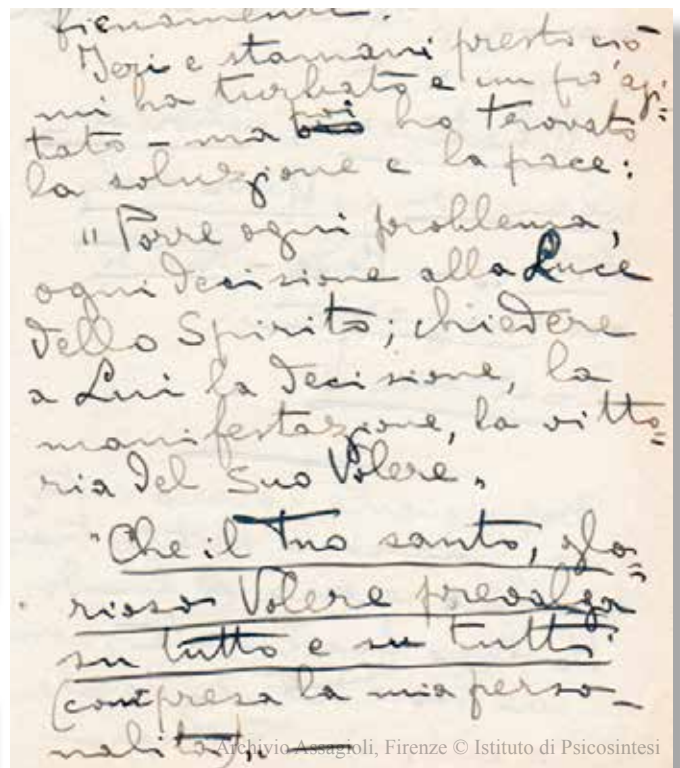 fienamente.
Ieri e stamani presto ciò
mi ha turbato e un pò agi=
tato – ma poi ho trovato
la soluzione e la pace:
"Porre ogni problema,
ogni decisione alla Luce
dello Spirito; chiedere
a Lui la decisione, la
manifestazione, la vitto=
ria del Suo Volere„
"Che il Tuo santo, glo=
rioso Volere prevalga
su tutto e su tutti"
(compresa la mia perso–
nalità)„
Archivio Assagioli, Firenze © Istituto di Psicosintesi